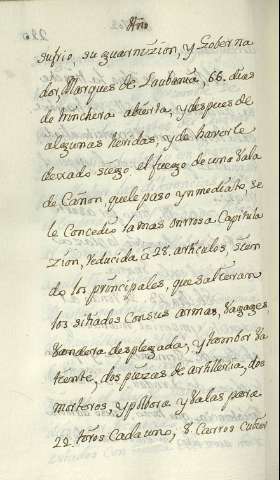 Año
sufrio, su guarnizion, y Goberna
dor, Marques de Laubania, 66. dias
de trinchera abierta, y despues de
algunas heridas, y de haverle
dexado ciego el fuego de una Vala
de Cañon, que le paso ynmediato, se
le Concedio la mas onrrosa Capitula
zion, reducida â 28. articulos, sien
do los principales, que salieran
los sitiados con sus armas, vagages,
Vandera desplegada, y tambor va
tiente, dos piezas de artilleria, dos
morteros, y polbora y valas para
22 tiros Cada uno, 8 Carros Cubier